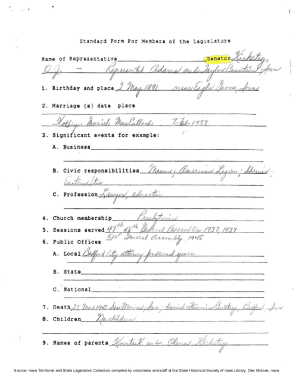 Standard Form For Members of the Legislature
Name of Representative Senator Kirketeg
O. J. - Represented Adams and Taylor Counties, Iowa
1. Birthday and place 2 May 1891 near Eagle Grove, Iowa
2. Marriage (s) date place
7 Feb 1937
3. Significant events for example:
A. Business
B. Civic responsibilities Mason; American Legion;
Eastern Star
C. Profession Lawyer,
4. Church membership Presbyterian
5. Sessions served 47th, 48th General Assemblies 1937, 1939
6. Public Offices 51st General Assembly 1945
A. Local Bedford City attorney
B. State
C. National
7. Death 22 Des Moines, Iowa, buried Cemetery, Bedford, Iowa
8. Children No children
9. Names of parents and Kirketeg
Source: Iowa Territorial and State Legislators Collection compiled by volunteers and staff at the State Historical Society of Iowa Library, Des Moines, Iowa.